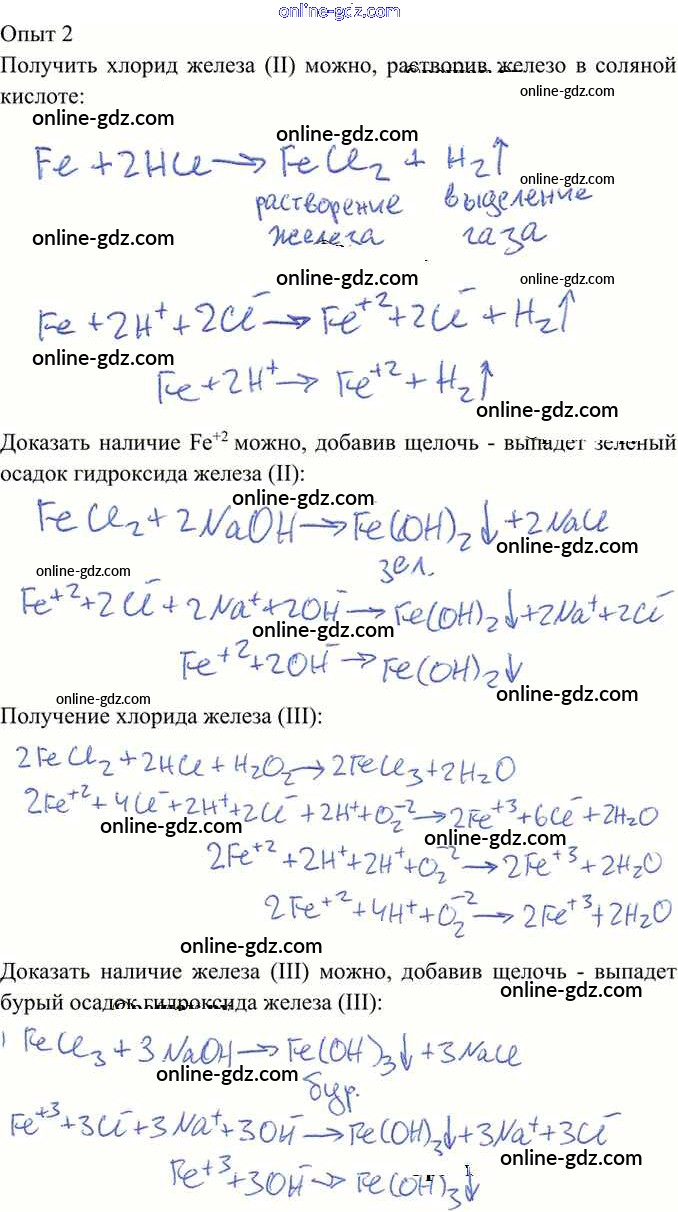 online-gdz.com
Опыт 2
Получить хлорид железа (II) можно, растворив железо в соляной
кислоте:
online-gdz.com
online-gdz.com
online-gdz.com
Fe + 2HCl → FeCl₂ + H₂↑
online-gdz.com
растворение выделение
железа газа
online-gdz.com
online-gdz.com
online-gdz.com
Fe + 2H⁺ + 2Cl⁻ → Fe⁺² + 2Cl⁻ + H₂↑
online-gdz.com
Fe + 2H⁺ → Fe⁺² + H₂↑
online-gdz.com
Доказать наличие Fe⁺² можно, добавив щелочь - выпадет зеленый
осадок гидроксида железа (II):
online-gdz.com
FeCl₂ + 2NaOH → Fe(OH)₂↓ + 2NaCl
online-gdz.com
зел.
online-gdz.com
Fe⁺² + 2Cl⁻ + 2Na⁺ + 2OH⁻ → Fe(OH)₂↓ + 2Na⁺ + 2Cl⁻
online-gdz.com
Fe⁺² + 2OH⁻ → Fe(OH)₂↓
online-gdz.com
online-gdz.com
Получение хлорида железа (III):
2FeCl₂ + 2HCl + H₂O₂ → 2FeCl₃ + 2H₂O
2Fe⁺² + 4Cl⁻ + 2H⁺ + 2Cl⁻ + 2H⁺ + O₂⁻² → 2Fe⁺³ + 6Cl⁻ + 2H₂O
online-gdz.com
online-gdz.com
2Fe⁺² + 2H⁺ + 2H⁺ + O₂⁻² → 2Fe⁺³ + 2H₂O
2Fe⁺² + 4H⁺ + O₂⁻² → 2Fe⁺³ + 2H₂O
online-gdz.com
Доказать наличие железа (III) можно, добавив щелочь - выпадет
online-gdz.com
бурый осадок гидроксида железа (III):
FeCl₃ + 3NaOH → Fe(OH)₃↓ + 3NaCl
online-gdz.com
бур.
Fe⁺³ + 3Cl⁻ + 3Na⁺ + 3OH⁻ → Fe(OH)₃↓ + 3Na⁺ + 3Cl⁻
online-gdz.com
Fe⁺³ + 3OH⁻ → Fe(OH)₃↓